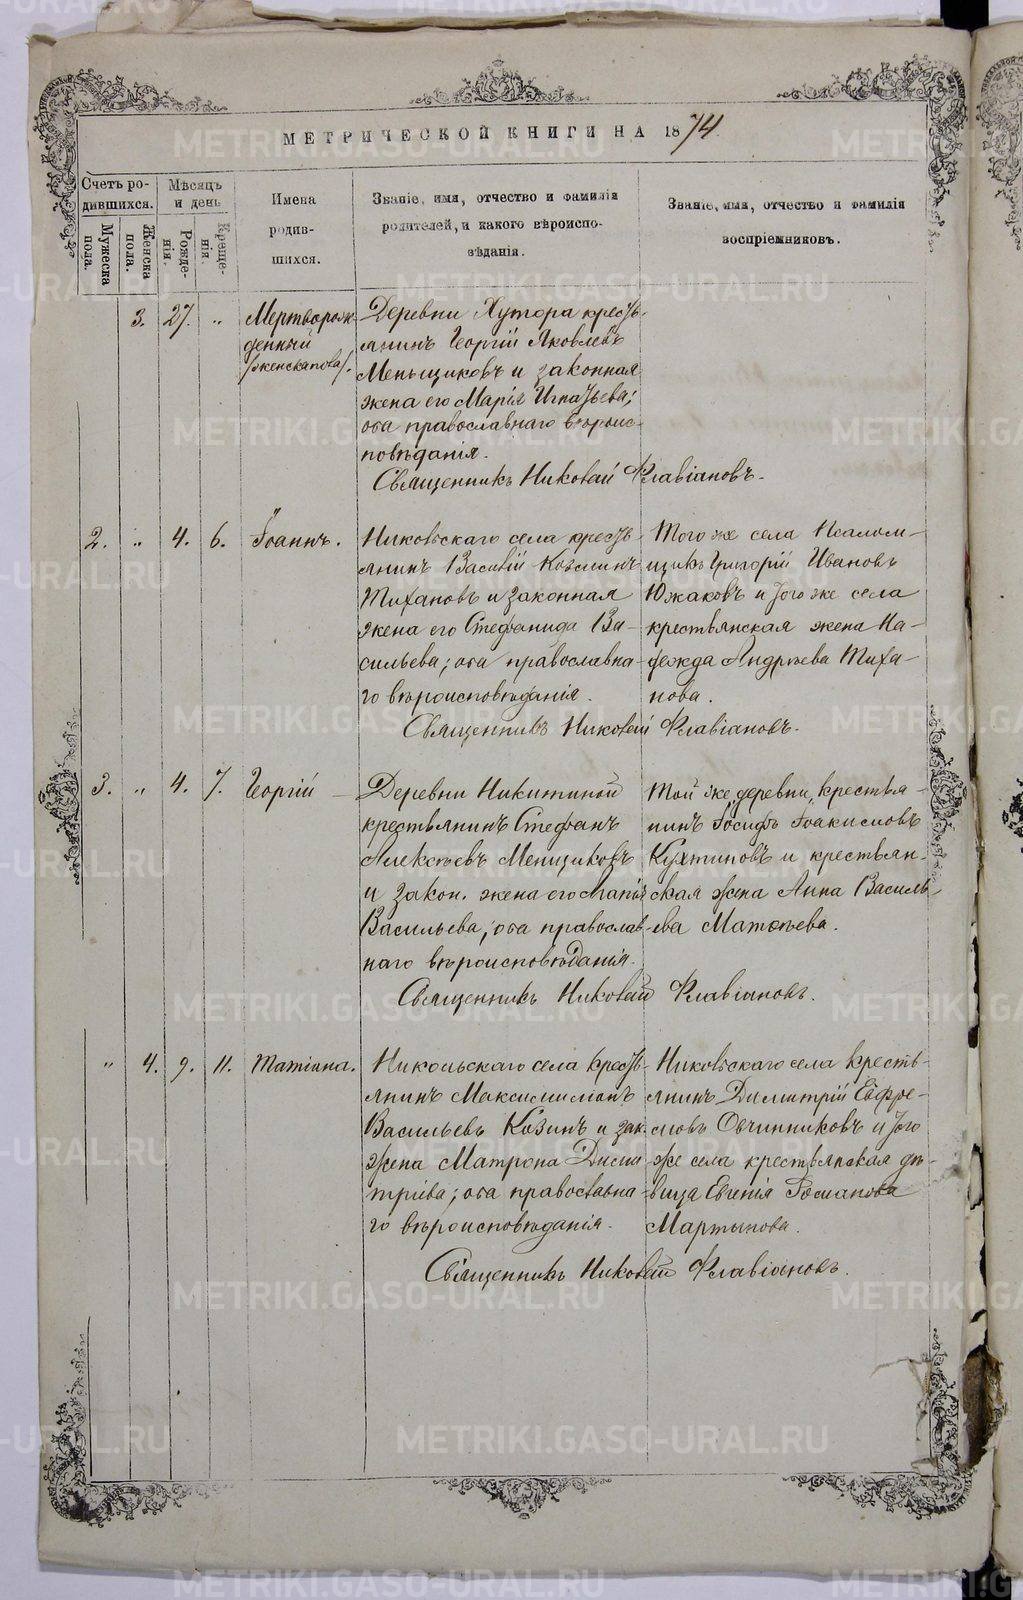 МЕТРИЧЕСКОЙ КНИГИ НА 1874.
Счетъ ро-
дившихся.
Мужеска пола.
Женска пола.
Мѣсяцъ
и день
Рожде-
нія.
Креще-
нія.
Имена
родив-
шихся.
Званіе, имя, отчество и фамилія
родителей, и какого вѣроиспо-
вѣданія.
Званіе, имя, отчество и фамилія
воспріемниковъ.
3. 27. „
Мертворож-
денный
/женска пола/.
Деревни Хутора кресть-
янинъ Георгій Яковлевъ
Меньщиковъ и законная
жена его Марія Игнатьева;
оба православнаго вѣроис-
повѣданія.
Священникъ Николай Флавіановъ.
2. „ 4. 6. Іоаннъ.
Никольскаго села кресть-
янинъ Василій Козминъ
Тихановъ и законная
жена его Стефанида Ва-
сильева; оба православна-
го вѣроисповѣданія.
Того же села Псалом-
щикъ Григорій Ивановъ
Южаковъ и того же села
крестьянская жена На-
дежда Андреева Тиха-
нова.
Священникъ Николай Флавіановъ.
3. „ 4. 7. Георгій
Деревни Никитиной
крестьянинъ Стефанъ
Алексѣевъ Менщиковъ
и закон. жена его Марія
Васильева; оба православ-
наго вѣроисповѣданія.
Той же деревни, крестья-
нинъ Іосифъ Іоакимовъ
Кухтиновъ и крестьян-
ская жена Анна Василь-
ева Матвѣева.
Священникъ Николай Флавіановъ.
„ 4. 9. 11. Татіана.
Никольскаго села кресть-
янинъ Максимиліанъ
Васильевъ Козинъ и зак.
жена Матрона Дими-
тріева; оба православна-
го вѣроисповѣданія.
Никольскаго села кресть-
янинъ Димитрій Евфре-
мовъ Овчинниковъ и того
же села крестьянская дѣ-
вица Евгенія Романова
Мартынова.
Священникъ Николай Флавіановъ.
METRIKI.GASO-URAL.RU